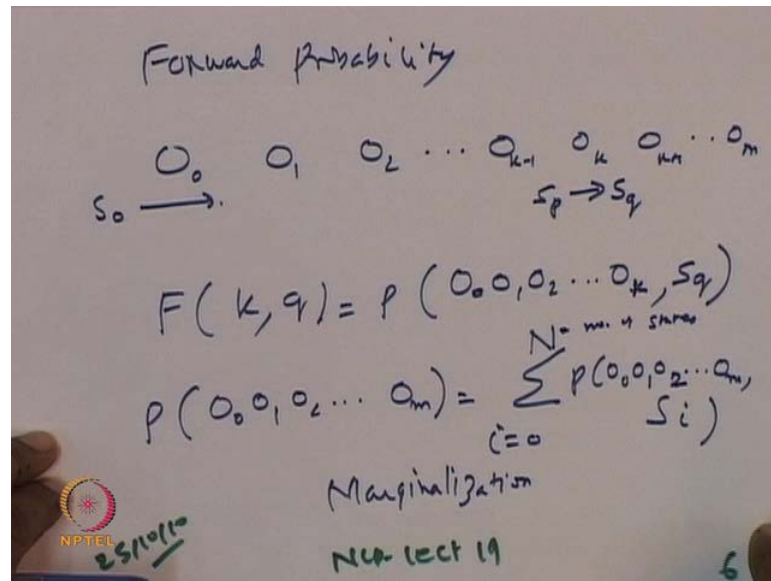 Forward Probability
O₀ O₁ O₂ ... Oₖ₋₁ Oₖ Oₖ₊₁ .. Oₘ
S₀ → . Sₚ → S_q
F(k, q) = P(O₀O₁O₂...Oₖ, S_q)
N = no. of states
P(O₀O₁O₂... Oₘ) = Σ P(O₀O₁O₂...Oₘ,
i=0 Sᵢ)
Marginalization
NPTEL
25/10/10 NLP-Lect 19 6